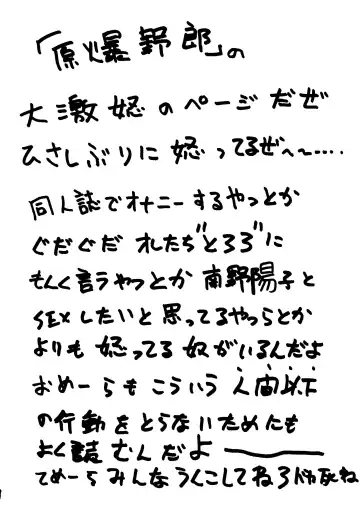 「原爆野郎」の
大激怒のページだぜ
ひさしぶりに怒ってるぜ～～‥‥
同人誌でオナニーするやつとか
ぐだぐだオレたち"とろろ"に
もんく言うやつとか南野陽子と
SEXしたいと思ってるやつらとか
よりも怒ってる奴がいるんだよ
おめーらもこういう人間以下
の行動をとらないためにも
よく読むんだよ――
てめーらみんなうんこしてねろバカ死ね